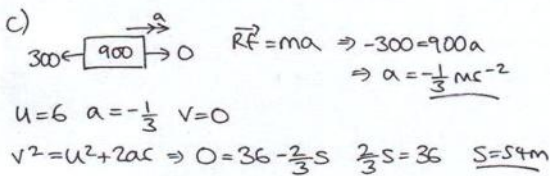 c)
a
300 900 0 RF=ma ⇒ -300=900a
⇒ a=-1/3 ms⁻²
u=6 a=-1/3 v=0
v²=u²+2as ⇒ 0=36-2/3s 2/3s=36 s=54m